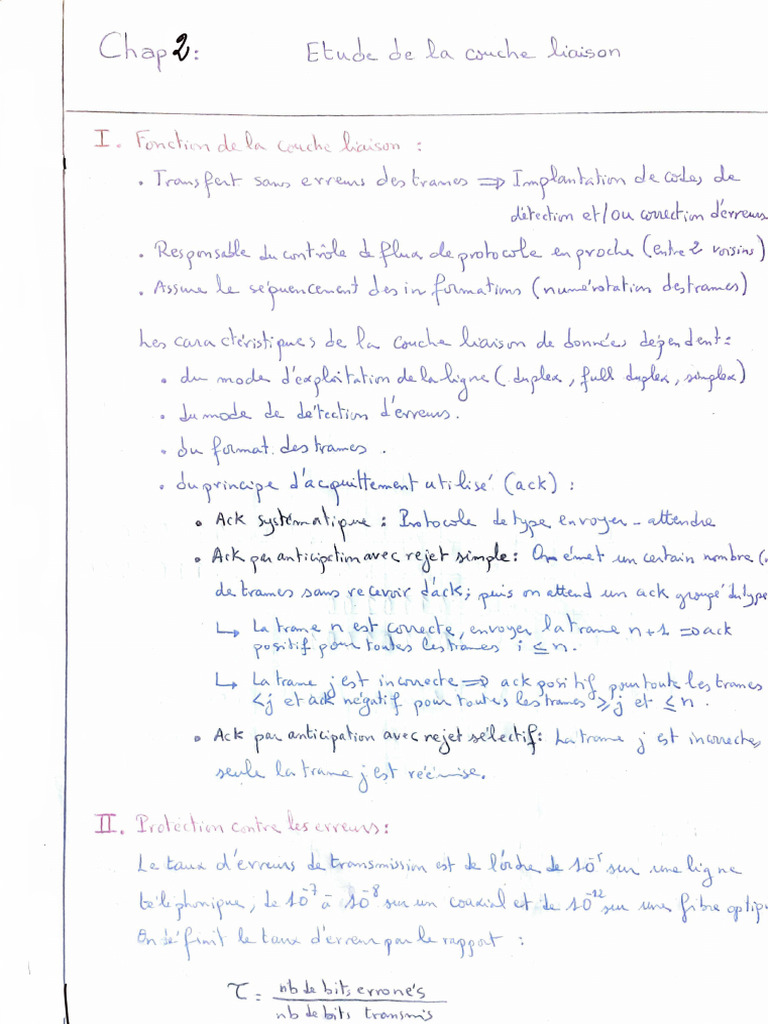 Chap 2 : Etude de la couche liaison
I. Fonction de la couche liaison :
. Transfert sans erreurs des trames => Implantation de codes de
détection et/ou correction d'erreurs
. Responsable du contrôle de flux de protocole en proche (entre 2 voisins)
. Assure le séquencement des informations (numérotation des trames)
Les caractéristiques de la couche liaison de données dépendent :
. du mode d'exploitation de la ligne (duplex, full duplex, simplex)
. du mode de détection d'erreurs.
. du format des trames.
. du principe d'acquittement utilisé (ack) :
• Ack systématique : Protocole de type envoyer - attendre
• Ack par anticipation avec rejet simple : On émet un certain nombre (
de trames sans recevoir d'ack ; puis on attend un ack groupé du type
↳ La trame n est correcte, envoyer la trame n+1 => ack
positif pour toutes les trames i ≤ n.
↳ La trame j est incorrecte => ack positif pour toute les trames
< j et ack négatif pour toutes les trames ≥ j et ≤ n.
• Ack par anticipation avec rejet sélectif : La trame j est incorrectes
seule la trame j est réémise.
II. Protection contre les erreurs :
Le taux d'erreurs de transmission est de l'ordre de sur une ligne
téléphonique, de 10⁻⁷ à 10⁻⁸ sur un coaxial et de 10⁻¹² sur une fibre optiqu
On définit le taux d'erreur par le rapport :
τ = nb de bits erronés
nb de bits transmis